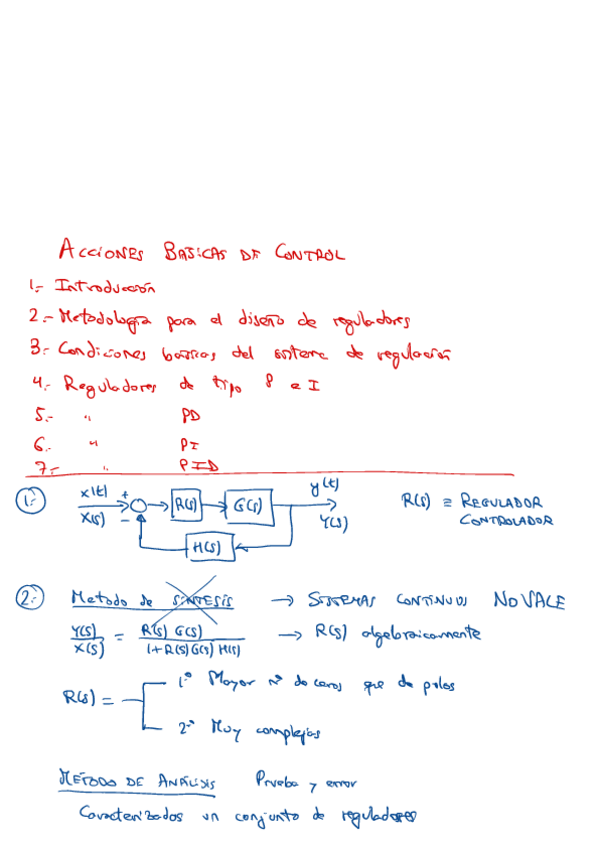 ACCIONES BASICAS DE CONTROL
1.- Introducción
2.- Metodología para el diseño de reguladores
3.- Condiciones básicas del sistema de regulación
4.- Reguladores de tipo P e I
5.- " PD
6.- " PI
7.- " PID
1.- x(t) X(s) + - R(s) G(s) H(s) y(t) Y(s) R(s) ≡ REGULADOR
CONTROLADOR
2.- Metodo de SINTESIS → SISTEMAS CONTINUOS NO VALE
Y(s)/X(s) = R(s) G(s)/1+R(s)G(s)H(s) → R(s) algebraicamente
R(s) = 1º Mayor nº de ceros que de polos
2º Muy complejos
MÉTODO DE ANÁLISIS Prueba y error
Caracterizados un conjunto de reguladores